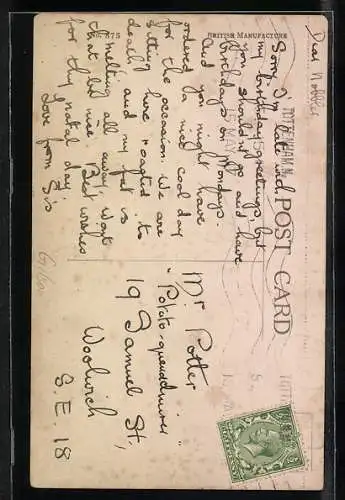 No. 375
BRITISH MANUFACTURE
POST CARD
TOTTENHAM N.
15 MAY
Dear
Sorry I'm late with
my birthday greetings, but
you should go and have
birthdays on Mondays.
And you might have
ordered a nice cool day
for the occasion. We are
sitting here roasted to
death and my fat is
melting all away, won't
that be nice. Best wishes
for thy natal day
Love from Sis
Mr Potter
"Potato-
19 Samuel St,
Woolwich
S.E. 18